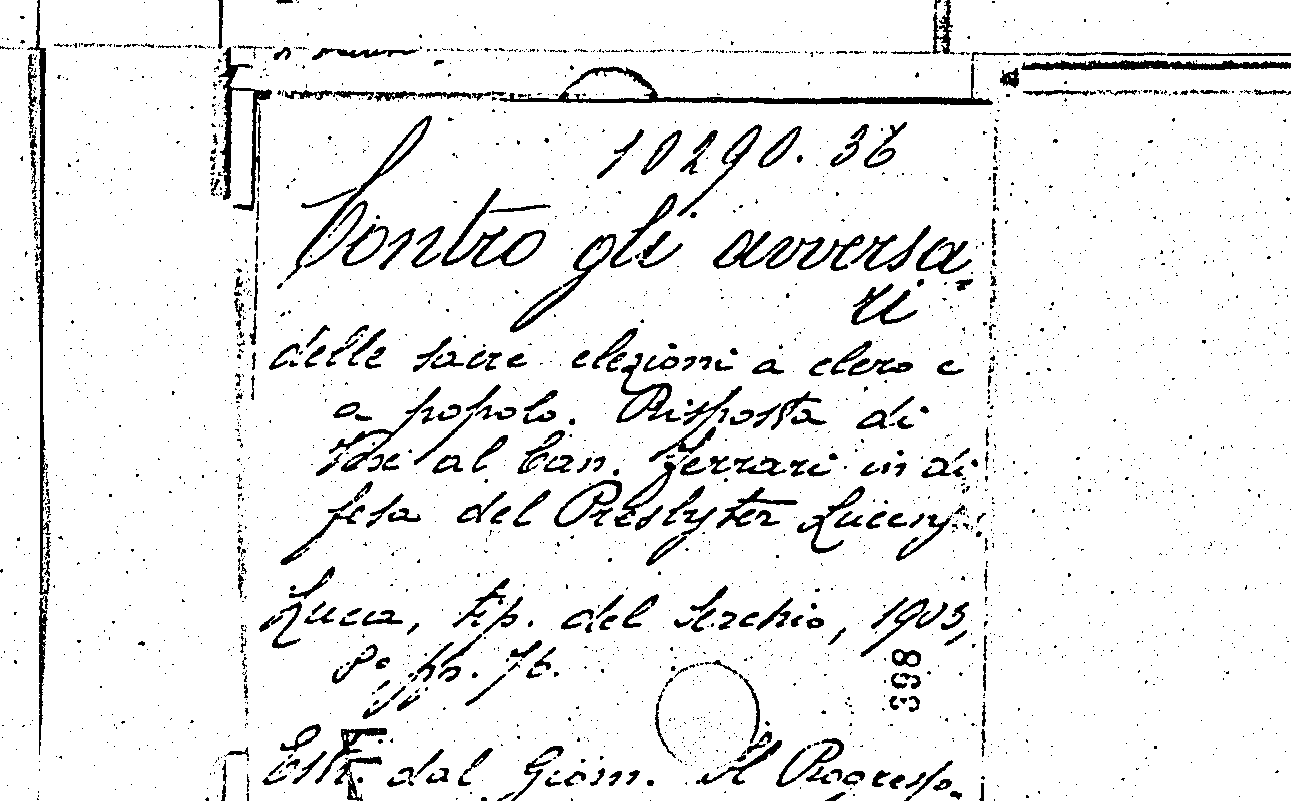 10290.36
Contro gli avversa-
ri
delle sacre elezioni a clero e
a popolo. Risposta di
al Can. Ferrari in di
fesa del Presbyter Lucens
Lucca, tip. del Serchio, 1903,
8°, pp. 76.
398
Estr. dal Giorn. Il Progresso.